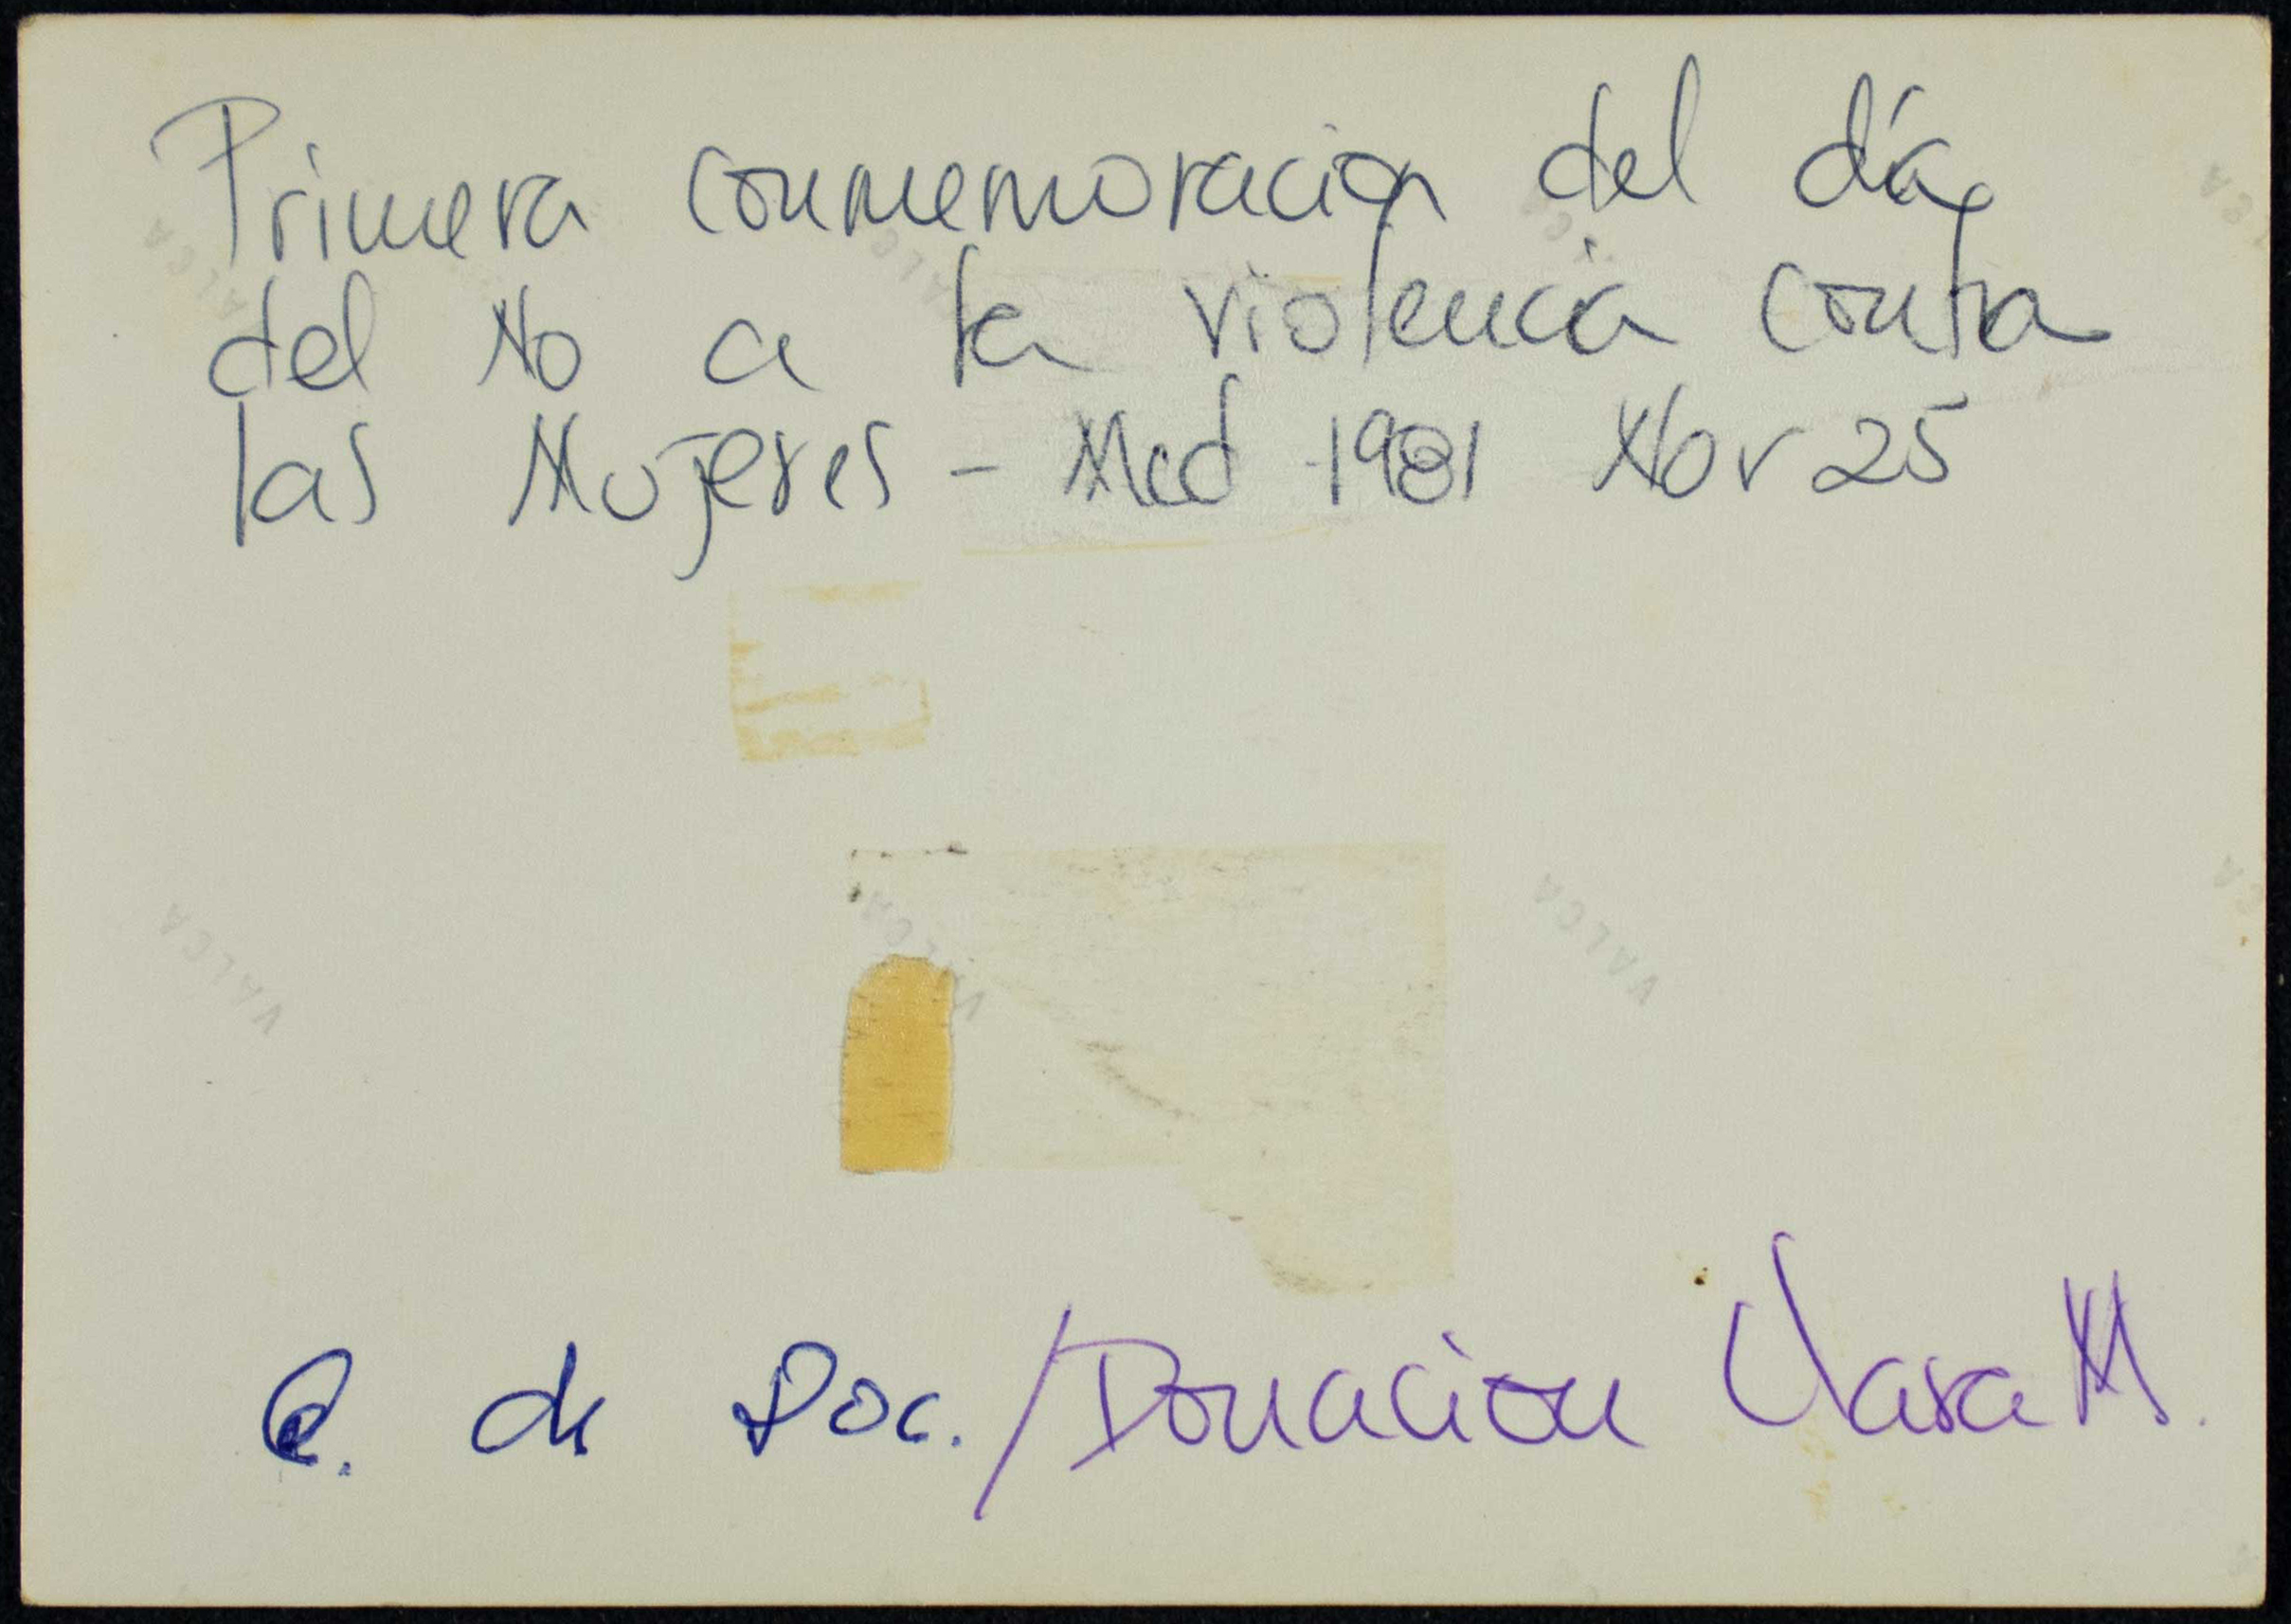 Primera conmemoración del día
del No a la violencia contra
las Mujeres - Med 1981 Nov 25
VALCA
VALCA
VALCA
C. de Doc. / Donacion Clara M.